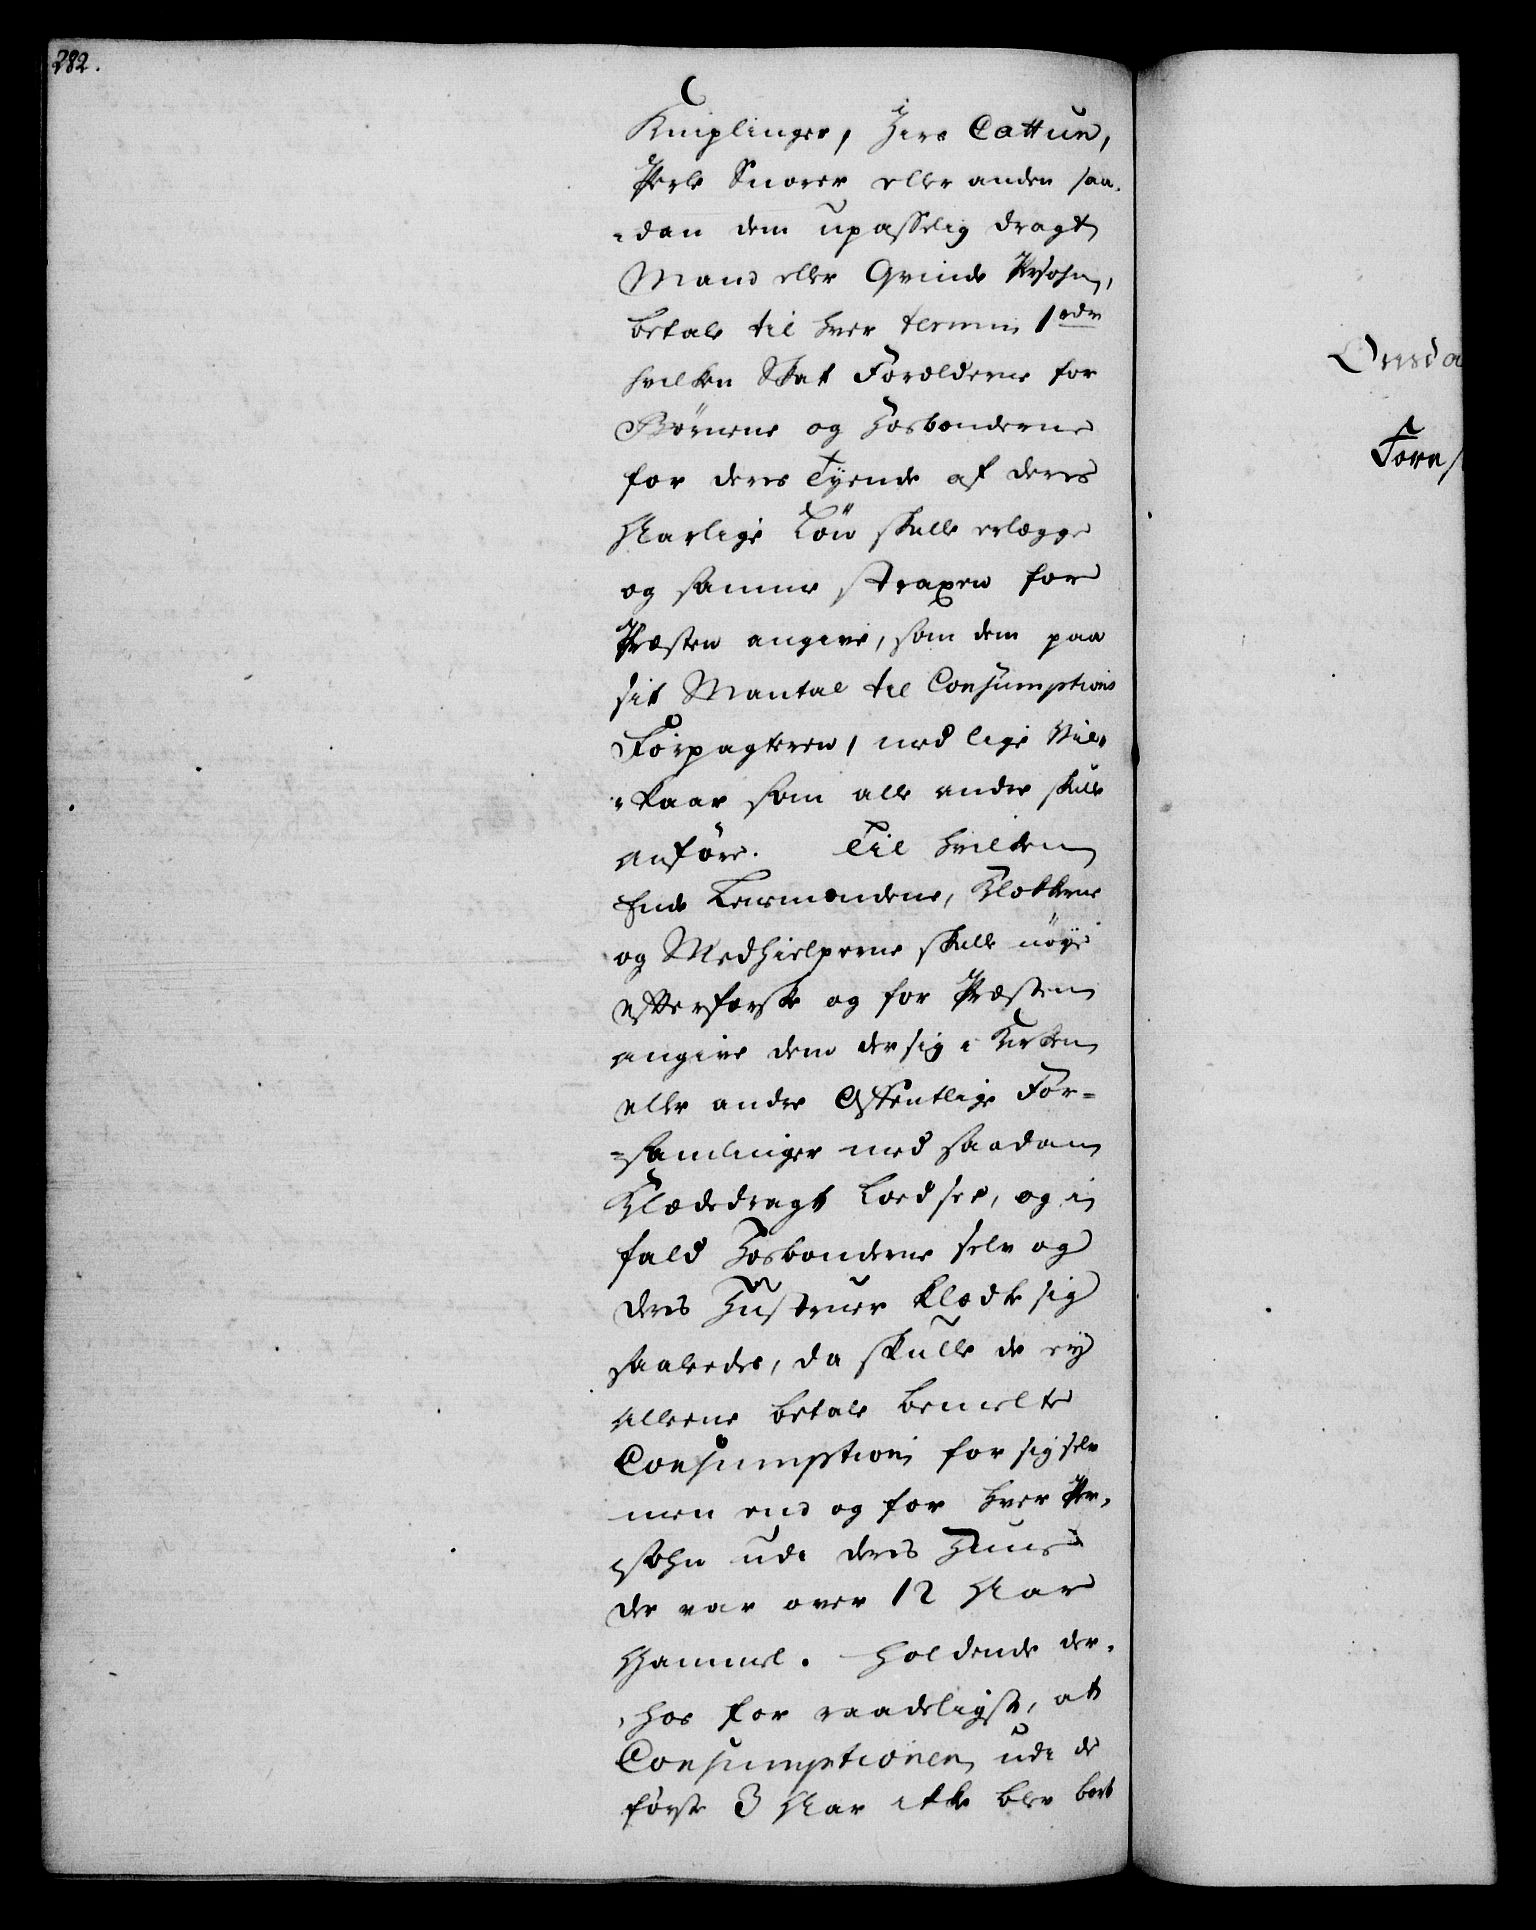 282.
Kniplinger, Zirs Cattun,
Perle Snorer eller anden saa-
-dan dem upasselig dragt
Mand eller Qvinde Persohn,
betale til hver termin 1 rdr
hvilken Skat Forældrene for
Børnene og Hosbonderne
for deres Tyende af deres
Aarlige Løn skulle erlægge
og samme straxen for
Præsten angive, som dem paa
sit Mantal til Consumptions
Forpagteren, med lige Vil-
-kaar som alle andre skulle
anføre. Til hvilken
Ende Lensmændene, Klokkerne
og Medhielperne skulle nøye
efterforske og for Præsten
angive dem der sig i Kirken
eller andre Offentlige For-
-samlinger med saadan
Klædedragt lod see, og i
fald Hosbonderne selv og
deres Hustruer klædte sig
saaledes, da skulle de ey
alleene betale bemelte
Consumption for sig selv
men end og for hver Per-
sohn udi deres Huus
der var over 12 Aar
Gammel. Holdende der-
-hos for raadeligst, at
Consumptionen udi de
første 3 Aar ikke blev bort
Onsda
Fores